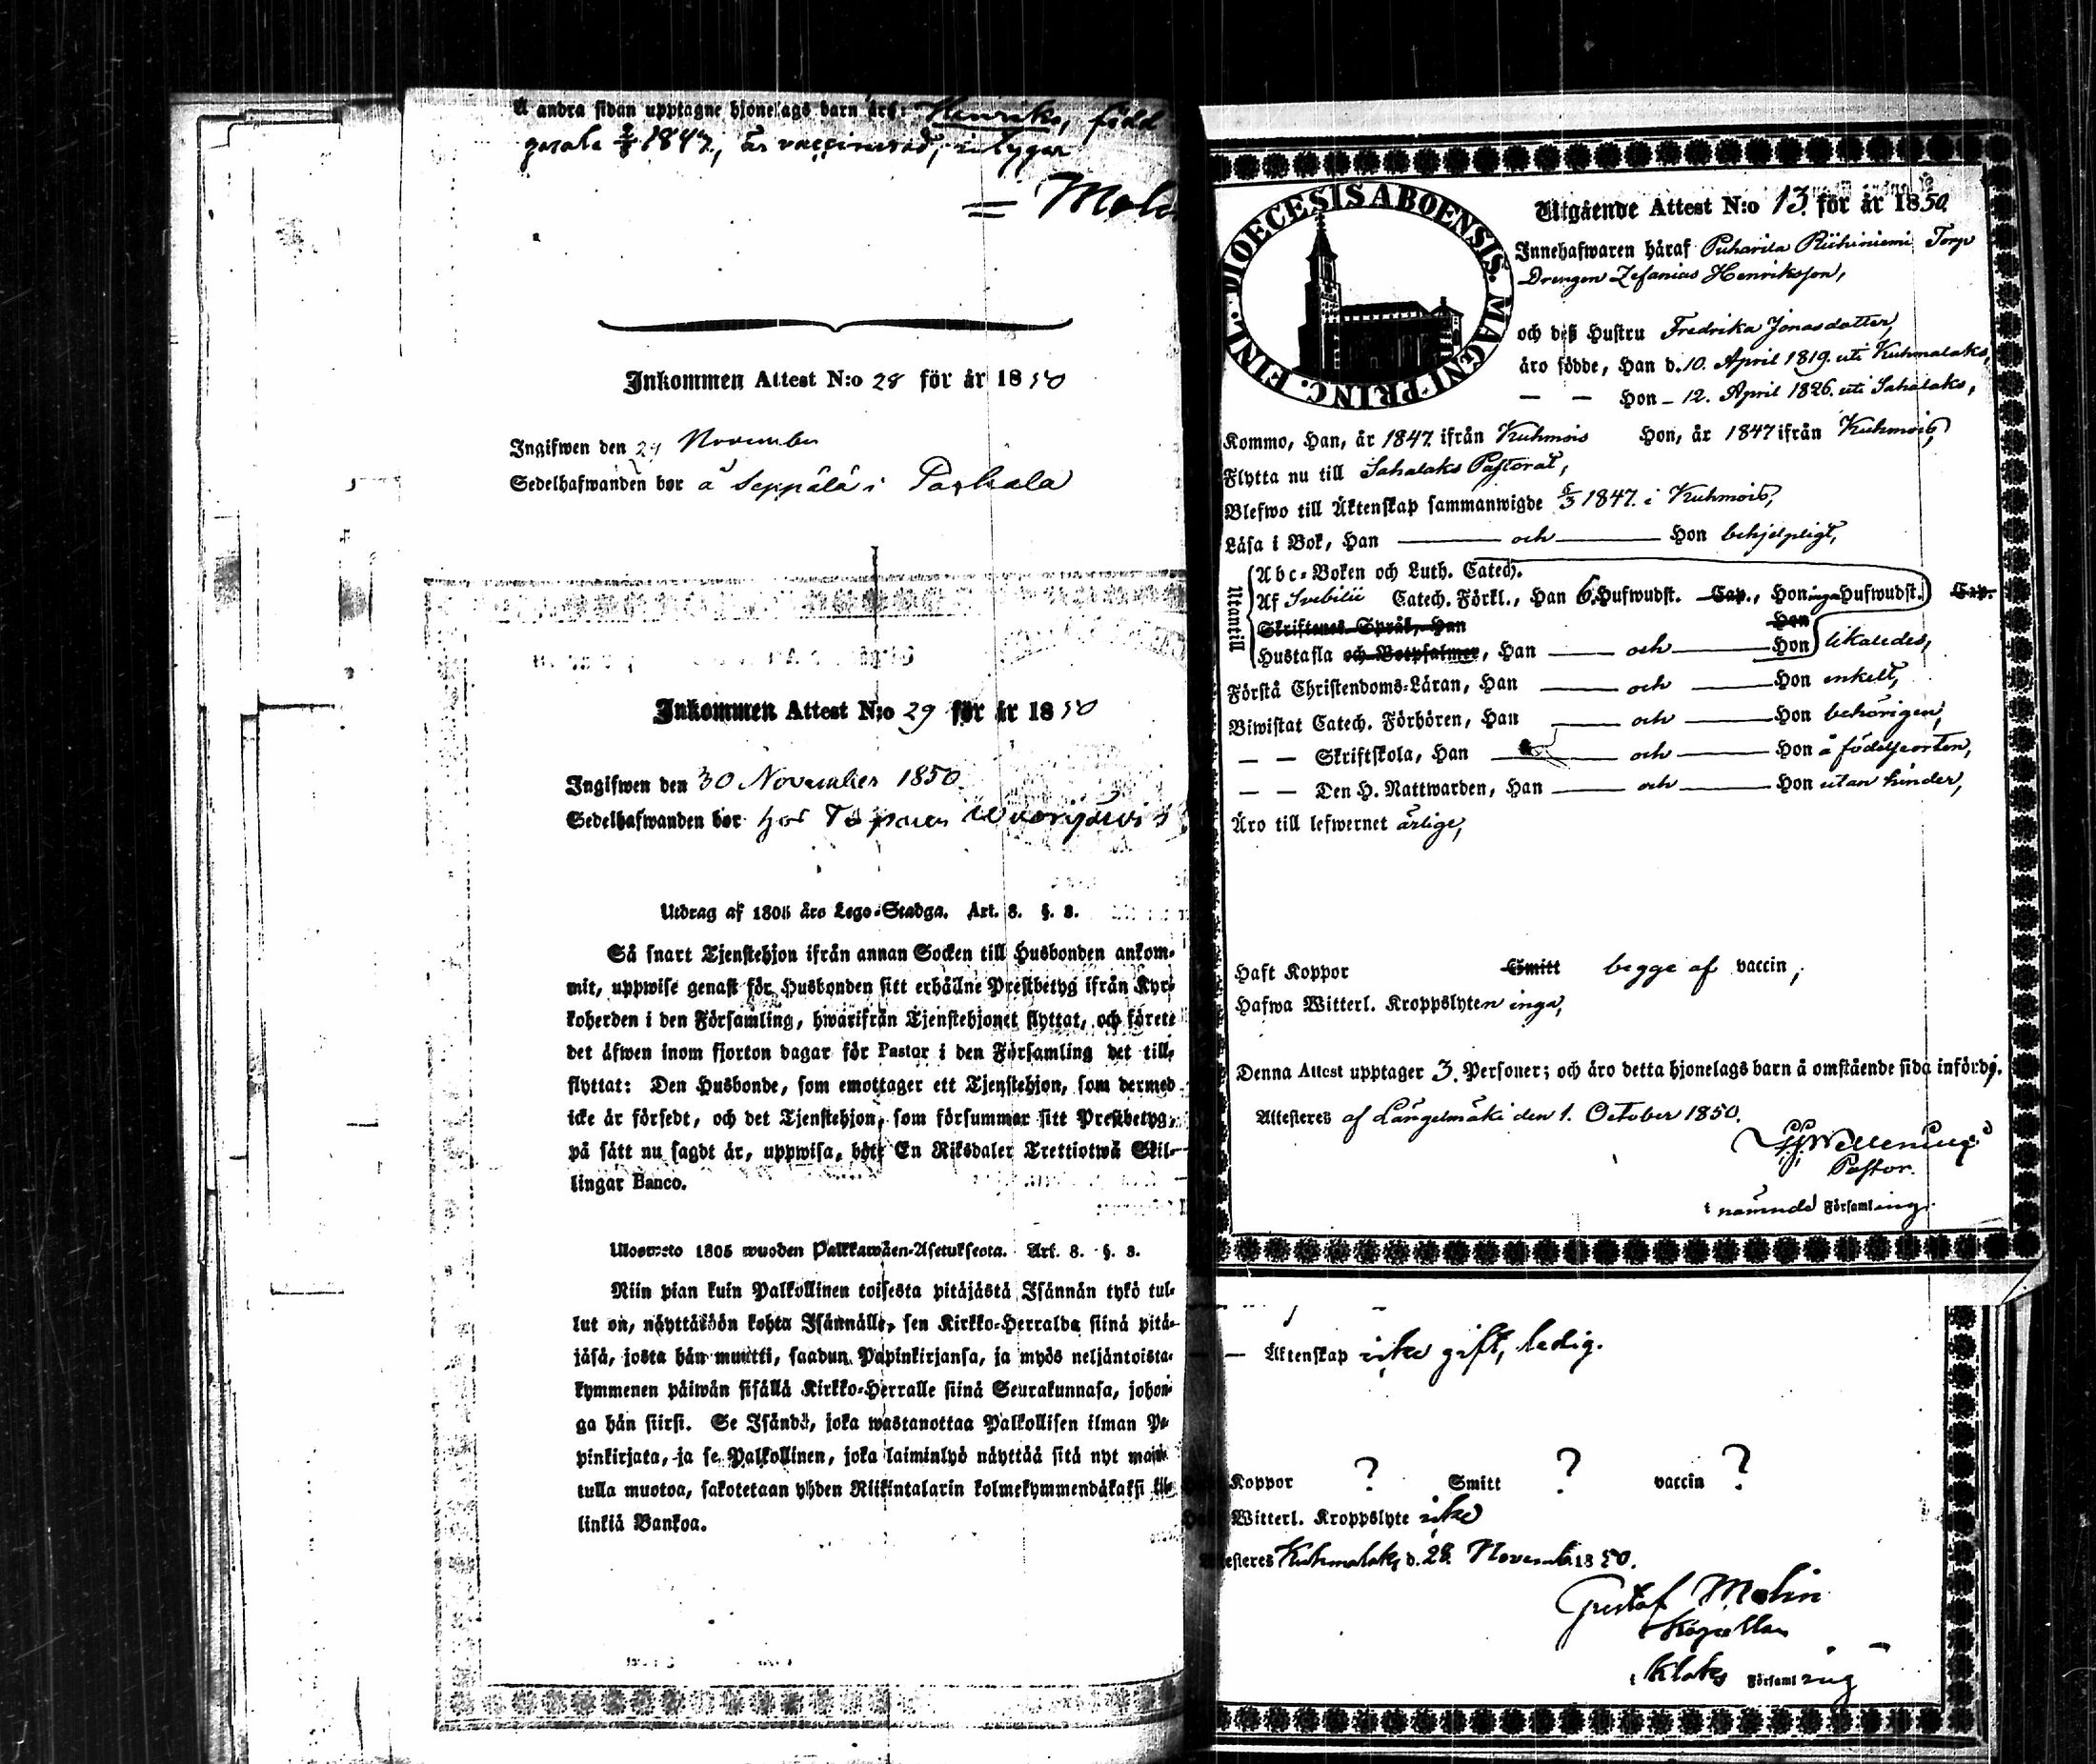 Å andra sidan upptagne hjonelags barn äro: Henriks, född
1847, är vaccinerad, intygar
= Molin
Inkommen Attest N:o 28 för år 1850
Ingifwen den 29 November
Sedelhafwanden bor å Seppälä i Pashala
Inkommen Attest N:o 29 för år 1850
Ingifwen den 30 November 1850.
Sedelhafwanden bor hos
Utdrag af 1805 års Lego-Stadga. Art. 8. §. 8.
Så snart Tjenstehjon ifrån annan Socken till Husbonden ankom-
mit, uppwise genast för Husbonden sitt erhållne Prestbetyg ifrån Kyr-
koherden i den Församling, hwarifrån Tjenstehjonet flyttat, och förete
det äfwen inom fjorton dagar för Pastor i den Församling det till-
flyttat: Den Husbonde, som emottager ett Tjenstehjon, som dermed
icke är försedt, och det Tjenstehjon, som försummar sitt Prestbetyg,
på sätt nu sagdt är, uppwisa, böte En Riksdaler Trettiotwå Skil-
lingar Banco.
Ulosweto 1805 wuoden Palkkawäen-Asetuksesta. Art. 8. §. 8.
Niin pian kuin Palkollinen toisesta pitäjästä Isännän tykö tul-
lut on, näyttäköön kohta Isännälle, sen Kirkko-Herralda siinä pitä-
jäsä, josta hän muutti, saadun Papinkirjansa, ja myös neljäntoista-
kymmenen päiwän sisällä Kirkko-Herralle siinä Seurakunnasa, johon-
ga hän siirsi. Se Isändä, joka wastanottaa Palkollisen ilman Pa-
pinkirjata, ja se Palkollinen, joka laiminlyö näyttää sitä nyt maini-
tulla muotoa, sakotetaan yhden Riikintalarin kolmekymmendäkaksi kil-
linkiä Bankoa.
DIOECESIS ABOENSIS. MAGNI PRINC. FINL.
Utgående Attest N:o 13. för år 1850.
Innehafwaren häraf Puharila Riihiniemi Torp
Drengen Zefanias Henriksson,
och deß Hustru Fredrika Jonasdotter,
äro födde, Han d. 10. April 1819. uti Kuhmalaks,
— — Hon – 12. April 1826. uti Sahalaks,
Kommo, Han, år 1847 ifrån Kuhmois Hon, år 1847 ifrån Kuhmois,
Flytta nu till Sahalaks Pastorat,
Blefwo till Äktenskap sammanwigde 6/3 1847. i Kuhmois,
Läsa i Bok, Han — och — Hon behjelpligt,
Utantill
Abc-Boken och Luth. Catech.
Af Svebilii Catech. Förkl., Han 6. Hufwudst. Cap., Hon inga Hufwudst. Cap.
Skriftenes Språk, Han Hon
Hustafla och Botpsalmer, Han — och — Hon likaledes,
Förstå Christendoms-Läran, Han — och — Hon enkelt,
Biwistat Catech. Förhören, Han — och — Hon behörigen,
— — Skriftskola, Han — och — Hon å födelseorten,
— — Den H. Nattwarden, Han — och — Hon utan hinder,
Äro till lefwernet ärlige,
Haft Koppor Smitt begge af vaccin,
Hafwa Witterl. Kroppslyten inga,
Denna Attest upptager 3. Personer; och äro detta hjonelags barn å omstående sida införde.
Attesteres af Längelmäki den 1. October 1850.
Wellenius
Pastor.
i nämnde Församling.
— Äktenskap icke gift, ledig.
Koppor ? Smitt ? vaccin ?
Witterl. Kroppslyte icke
Attesteres Kuhmalaks, d. 28. Novemb. 1850.
Gustaf Molin
Kapellan
i Klaks Församling